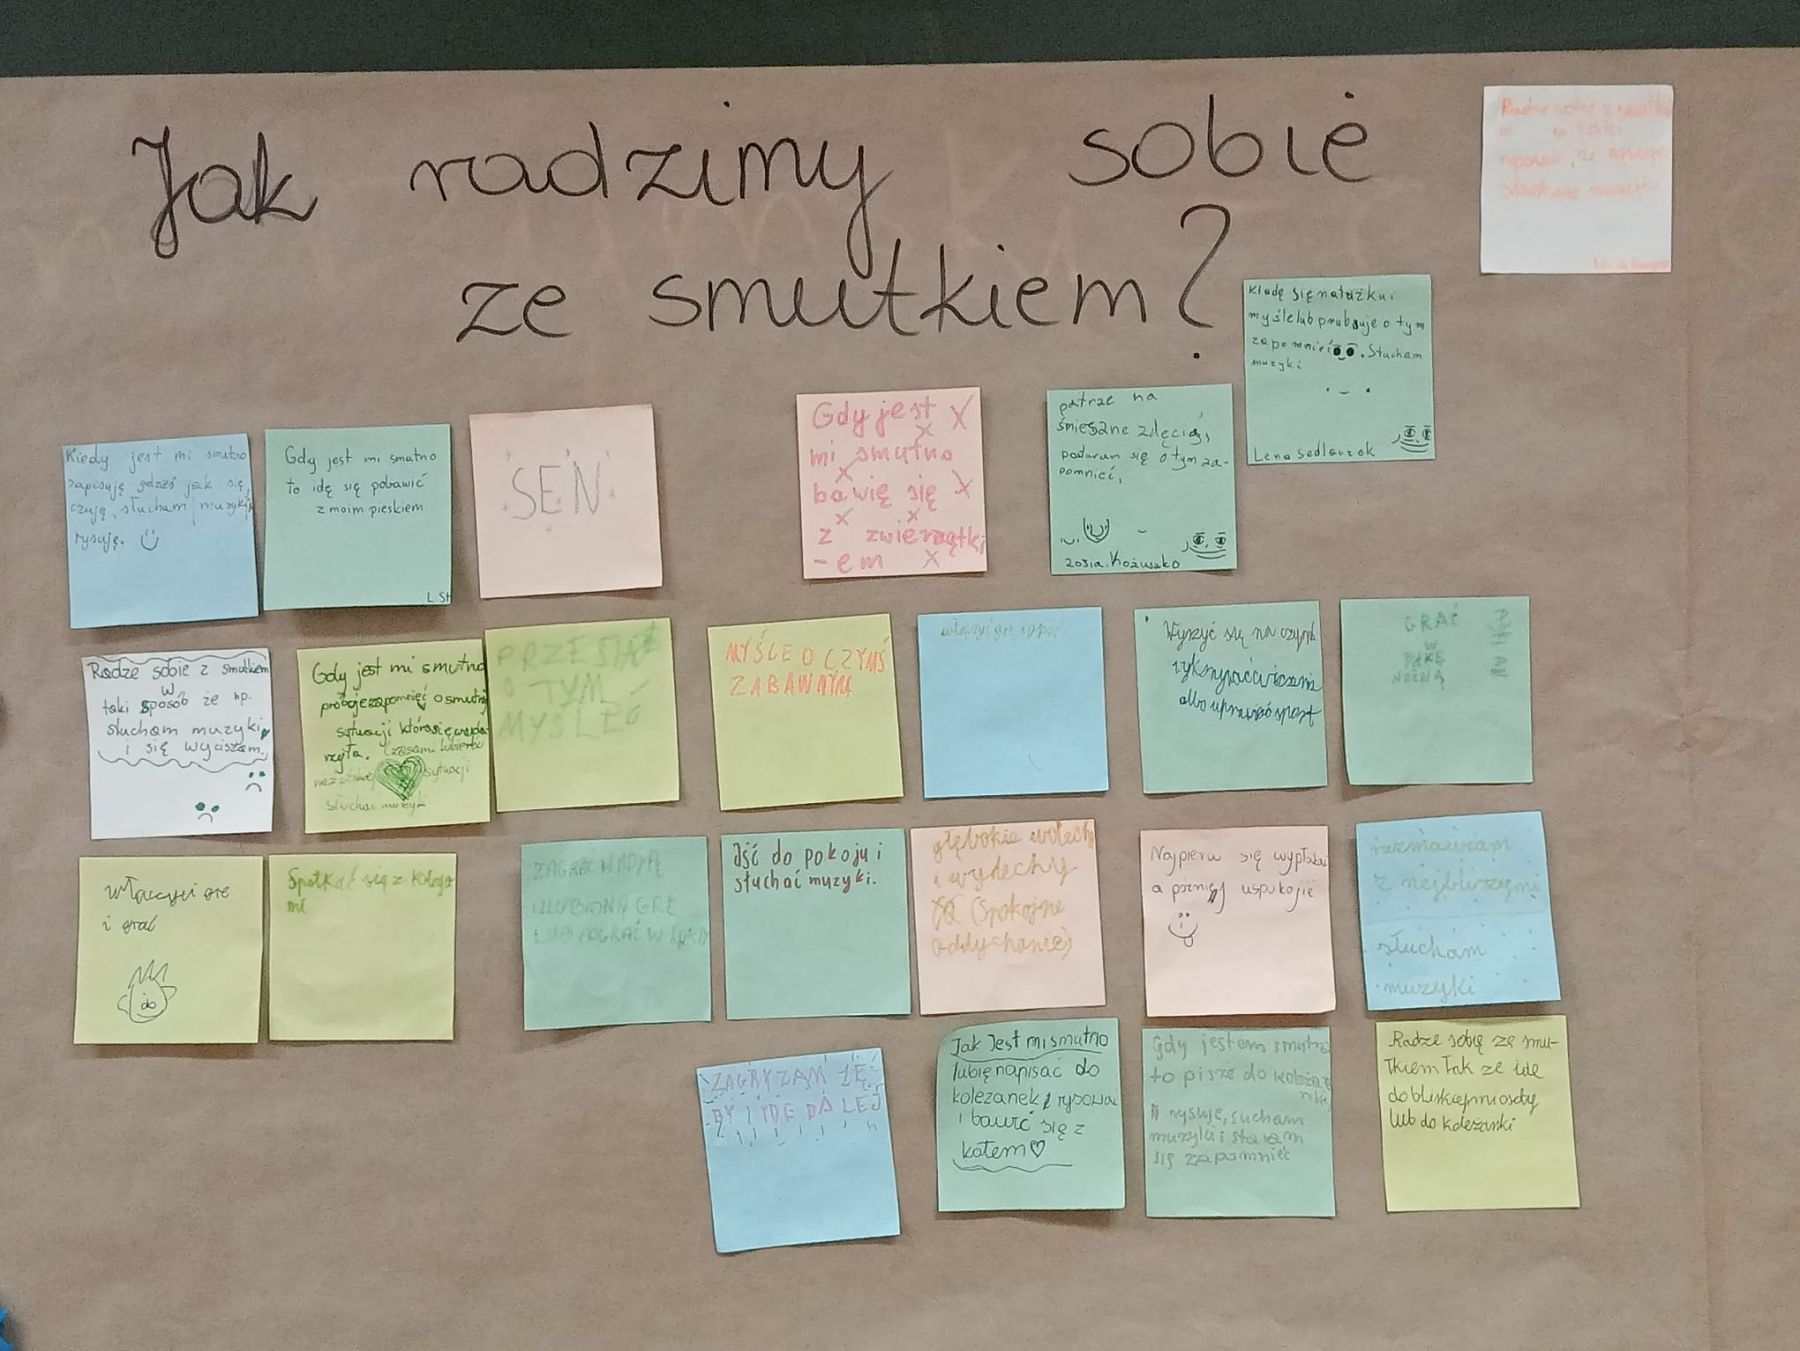 Jak radzimy sobie
ze smutkiem?
Radze sobie z smutkie
Kładę się na łużku i
myśle lub prubuje o tym
zapomnieć. Słucham
muzyki
Lena Sedlaczek
Kiedy jest mi smutno
zapisuję gdzieś jak się
czuję, słucham muzyki,
rysuję.
Gdy jest mi smutno
to idę się pobawić
z moim pieskiem.
L.St
SEN
Gdy jest
mi smutno
bawię się
z zwierzątki
-em
patrze na
śmieszne zdjęcia,
podaram się o tym za-
pomnieć,
zosia. Kożuszko
Radze sobie z smutkiem
w
taki sposób że np.
słucham muzyki
i się wyciszam.
Gdy jest mi smutno
próboje zapomnieć o smutnej
sytuacji która się wyda
rzyła. Czasami lubię
sytuacji
słuchać muzyki
PRZESTAĆ
O TYM
MYŚLEĆ
MYŚLE O CZYMŚ
ZABAWNYM
włączyć grę i grać
Wyrzyć się na czymś
wykonywać ćwiczenia
albo uprawiać sport
GRAĆ
W
PIŁKĘ
NOŻNĄ
włączyć gre
i grać
Spotkać się z kolega
mi
ZAGRAĆ W MOJĄ
ULUBIONĄ GRĘ
LUB POGRAĆ W
Iść do pokoju i
słuchać muzyki.
głębokie wdechy
i wydechy
(Spokojne
oddychanie)
Najpierw się wypłakać
a pozniej uspokojic
rozmawiam
z najbliższymi
słucham
muzyki
ZAGRYZAM ZĘ-
BY I IDE DALEJ
Jak Jest mi smutno
lubię napisać do
koleżanek, rysować
i bawić się z
kotem♡
Gdy jestem smutna
to piszę do koleża
nki,
rysuję, sucham
muzyki i staram
się zapomnieć
Radze sobię ze smu-
tkiem tak ze ide
do bliskiej mi osoby
lub do koleżanki